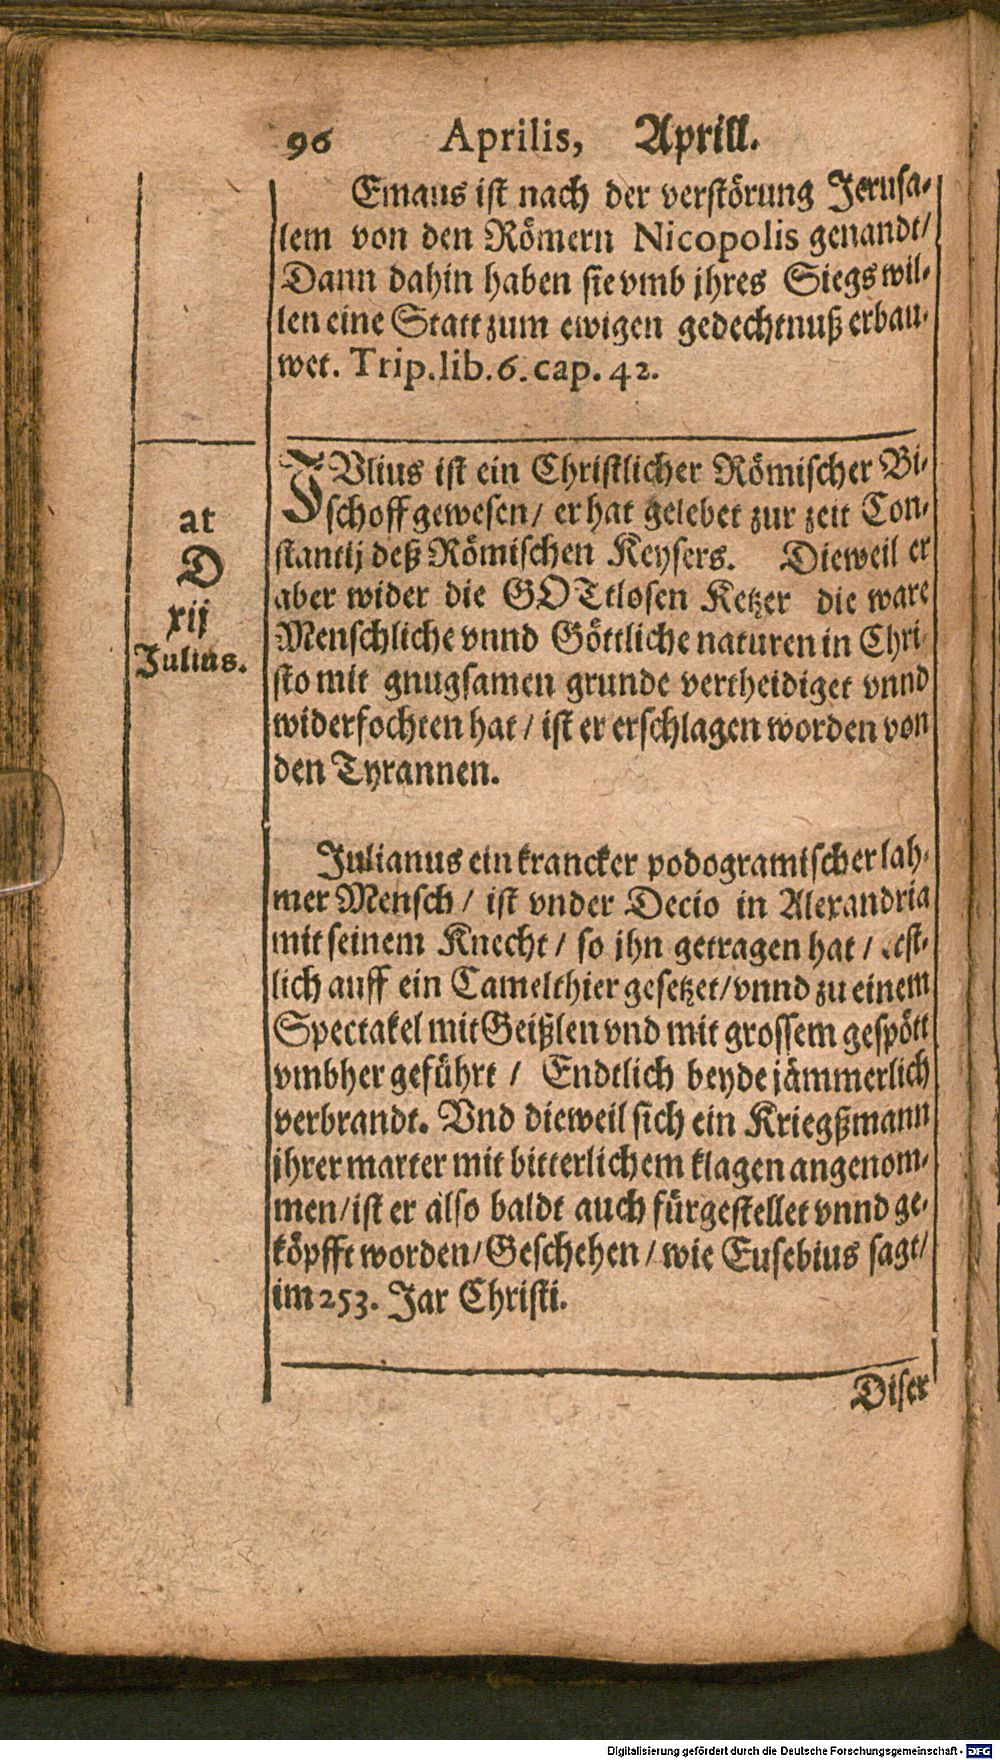 96 Aprilis, Aprill.
Emaus ist nach der verstörung Jerusa-
lem von den Römern Nicopolis genandt/
Dann dahin haben sie vmb jhres Siegs wil-
len eine Statt zum ewigen gedechtnuß erbau-
wet. Trip. lib. 6. cap. 42.
at
D
xij
Julius.
JVlius ist ein Christlicher Römischer Bi-
schoff gewesen/ er hat gelebet zur zeit Con-
stantij deß Römischen Keysers. Dieweil er
aber wider die GOTtlosen Ketzer die ware
Menschliche vnnd Göttliche naturen in Chri-
sto mit gnugsamen grunde vertheidiget vnnd
widerfochten hat/ ist er erschlagen worden von
den Tyrannen.
Julianus ein krancker podogramischer lah-
mer Mensch/ ist vnder Decio in Alexandria
mit seinem Knecht/ so jhn getragen hat/
lich auff ein Camelthier gesetzet/ vnnd zu einem
Spectakel mit Geißlen vnd mit grossem gespött
vmbher geführt/ Endtlich beyde jämmerlich
verbrandt. Vnd dieweil sich ein Kriegßmann
jhrer marter mit bitterlichem klagen angenom-
men/ ist er also baldt auch fürgestellet vnnd ge-
köpfft worden/ Geschehen/ wie Eusebius sagt/
im 253. Jar Christi.
Diser
Digitalisierung gefördert durch die Deutsche Forschungsgemeinschaft - DFG